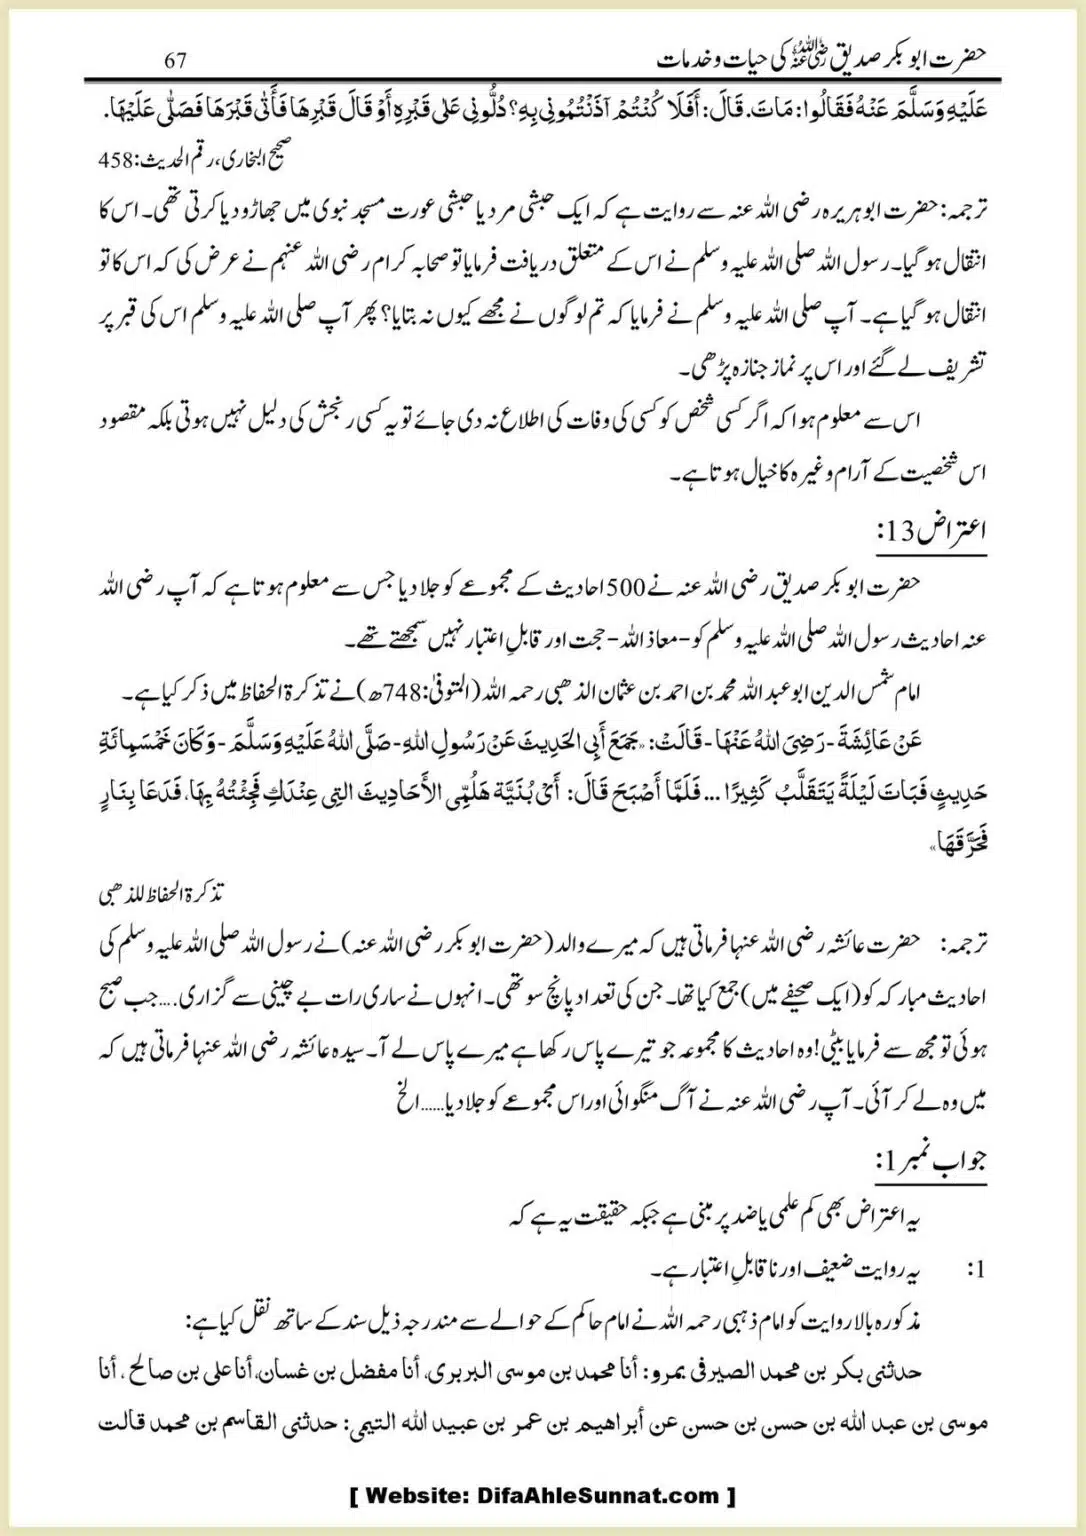 حضرت ابو بکر صدیق رضی اللہ عنہ کی حیات و خدمات 67
عَلَيْهِ وَسَلَّمَ عَنْهُ فَقَالُوا: مَاتَ. قَالَ: أَفَلَا كُنْتُمْ آذَنْتُمُونِي بِهِ؟ دُلُّونِي عَلٰى قَبْرِهِ أَوْ قَالَ قَبْرِهَا فَأَتٰى قَبْرَهَا فَصَلّٰى عَلَيْهَا.
صحیح البخاری، رقم الحدیث: 458
ترجمہ: حضرت ابوہریرہ رضی اللہ عنہ سے روایت ہے کہ ایک حبشی مرد یا حبشی عورت مسجد نبوی میں جھاڑو دیا کرتی تھی۔ اس کا
انتقال ہو گیا۔ رسول اللہ صلی اللہ علیہ وسلم نے اس کے متعلق دریافت فرمایا تو صحابہ کرام رضی اللہ عنہم نے عرض کی کہ اس کا تو
انتقال ہو گیا ہے۔ آپ صلی اللہ علیہ وسلم نے فرمایا کہ تم لوگوں نے مجھے کیوں نہ بتایا؟ پھر آپ صلی اللہ علیہ وسلم اس کی قبر پر
تشریف لے گئے اور اس پر نماز جنازہ پڑھی۔
اس سے معلوم ہوا کہ اگر کسی شخص کو کسی کی وفات کی اطلاع نہ دی جائے تو یہ کسی رنجش کی دلیل نہیں ہوتی بلکہ مقصود
اس شخصیت کے آرام وغیرہ کا خیال ہوتا ہے۔
اعتراض 13:
حضرت ابو بکر صدیق رضی اللہ عنہ نے 500 احادیث کے مجموعے کو جلا دیا جس سے معلوم ہوتا ہے کہ آپ رضی اللہ
عنہ احادیث رسول اللہ صلی اللہ علیہ وسلم کو -معاذ اللہ- حجت اور قابلِ اعتبار نہیں سمجھتے تھے۔
امام شمس الدین ابو عبد اللہ محمد بن احمد بن عثمان الذھبی رحمہ اللہ (المتوفیٰ: 748ھ) نے تذکرۃ الحفاظ میں ذکر کیا ہے۔
عَنْ عَائِشَةَ - رَضِيَ اللهُ عَنْهَا - قَالَتْ: «جَمَعَ أَبِي الْحَدِيثَ عَنْ رَسُولِ اللهِ - صَلَّى اللهُ عَلَيْهِ وَسَلَّمَ - وَكَانَ خَمْسَمِائَةِ
حَدِيثٍ فَبَاتَ لَيْلَةً يَتَقَلَّبُ كَثِيرًا ... فَلَمَّا أَصْبَحَ قَالَ: أَيْ بُنَيَّة هَلُمِّي الأَحَادِيثَ التِي عِنْدَكِ فَجِئْتُهُ بِهَا، فَدَعَا بِنَارٍ
فَحَرَّقَهَا»
تذکرۃ الحفاظ للذھبی
ترجمہ: حضرت عائشہ رضی اللہ عنہا فرماتی ہیں کہ میرے والد (حضرت ابو بکر رضی اللہ عنہ) نے رسول اللہ صلی اللہ علیہ وسلم کی
احادیث مبارکہ کو (ایک صحیفے میں) جمع کیا تھا۔ جن کی تعداد پانچ سو تھی۔ انہوں نے ساری رات بے چینی سے گزاری.... جب صبح
ہوئی تو مجھ سے فرمایا بیٹی! وہ احادیث کا مجموعہ جو تیرے پاس رکھا ہے میرے پاس لے آ۔ سیدہ عائشہ رضی اللہ عنہا فرماتی ہیں کہ
میں وہ لے کر آئی۔ آپ رضی اللہ عنہ نے آگ منگوائی اور اس مجموعے کو جلا دیا...... الخ
جواب نمبر 1:
یہ اعتراض بھی کم علمی یا ضد پر مبنی ہے جبکہ حقیقت یہ ہے کہ
1: یہ روایت ضعیف اور نا قابلِ اعتبار ہے۔
مذکورہ بالا روایت کو امام ذہبی رحمہ اللہ نے امام حاکم کے حوالے سے مندرجہ ذیل سند کے ساتھ نقل کیا ہے:
حدثني بكر بن محمد الصيرفي بمرو: أنا محمد بن موسى البربري، أنا مفضل بن غسان، أنا علي بن صالح ، أنا
موسى بن عبد الله بن حسن بن حسن عن أبراهيم بن عمر بن عبيد الله التيمي: حدثني القاسم بن محمد قالت
[ Website: DifaAhleSunnat.com ]